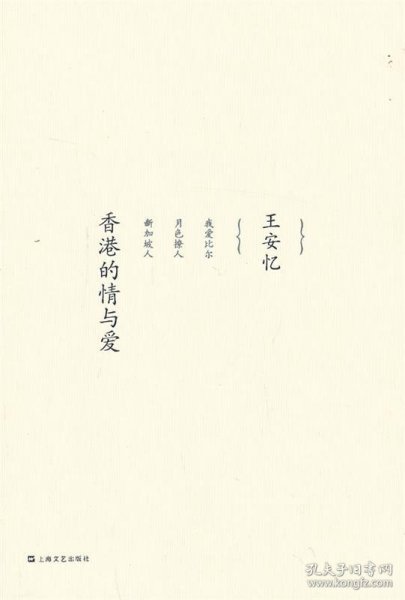 王安忆
我爱比尔
月色撩人
新加坡人
香港的情与爱
上海文艺出版社
孔夫子旧书网
www.kongfz.com